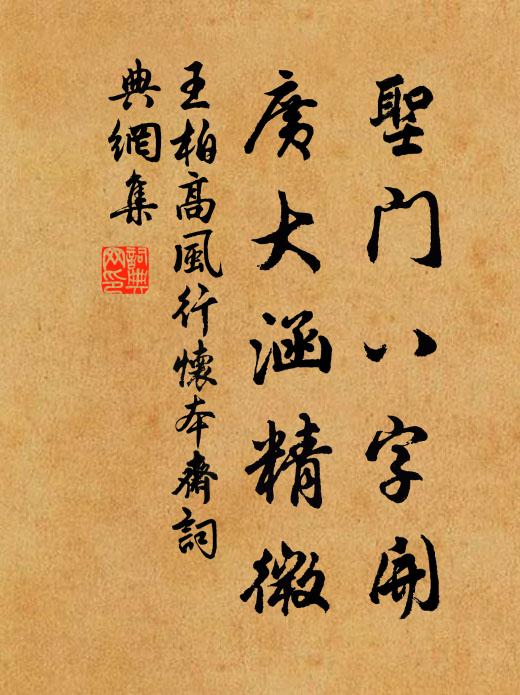 聖门八字開
廣大涵精微
王柏高風行懷本齋詞
典網集
詞典網印